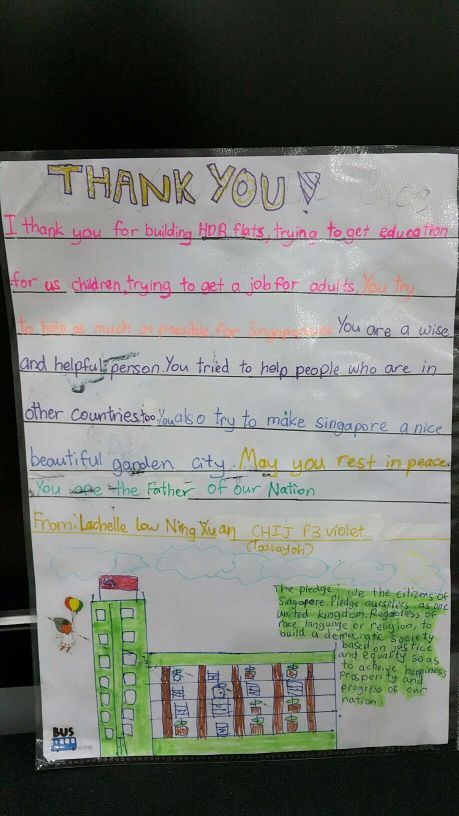 THANK YOU!
I thank you for building HDB flats, trying to get education
for us children, trying to get a job for adults. You try
to help as much as possible for Singaporeans. You are a wise
and helpful person. You tried to help people who are in
other countries too. You also try to make singapore a nice
beautiful garden city. May you rest in peace.
You are the Father of our Nation
From: Lachelle Low Ning Xuan CHIJ P3 violet
(Toa Payoh)
The pledge We the citizens of
Singapore Pledge ourselves as one
United kingdom. Regardless of
race language or religion, to
build a democratic society
based on justice
and equality so as
to achieve happiness
prosperity and
progress of our
nation
BUS